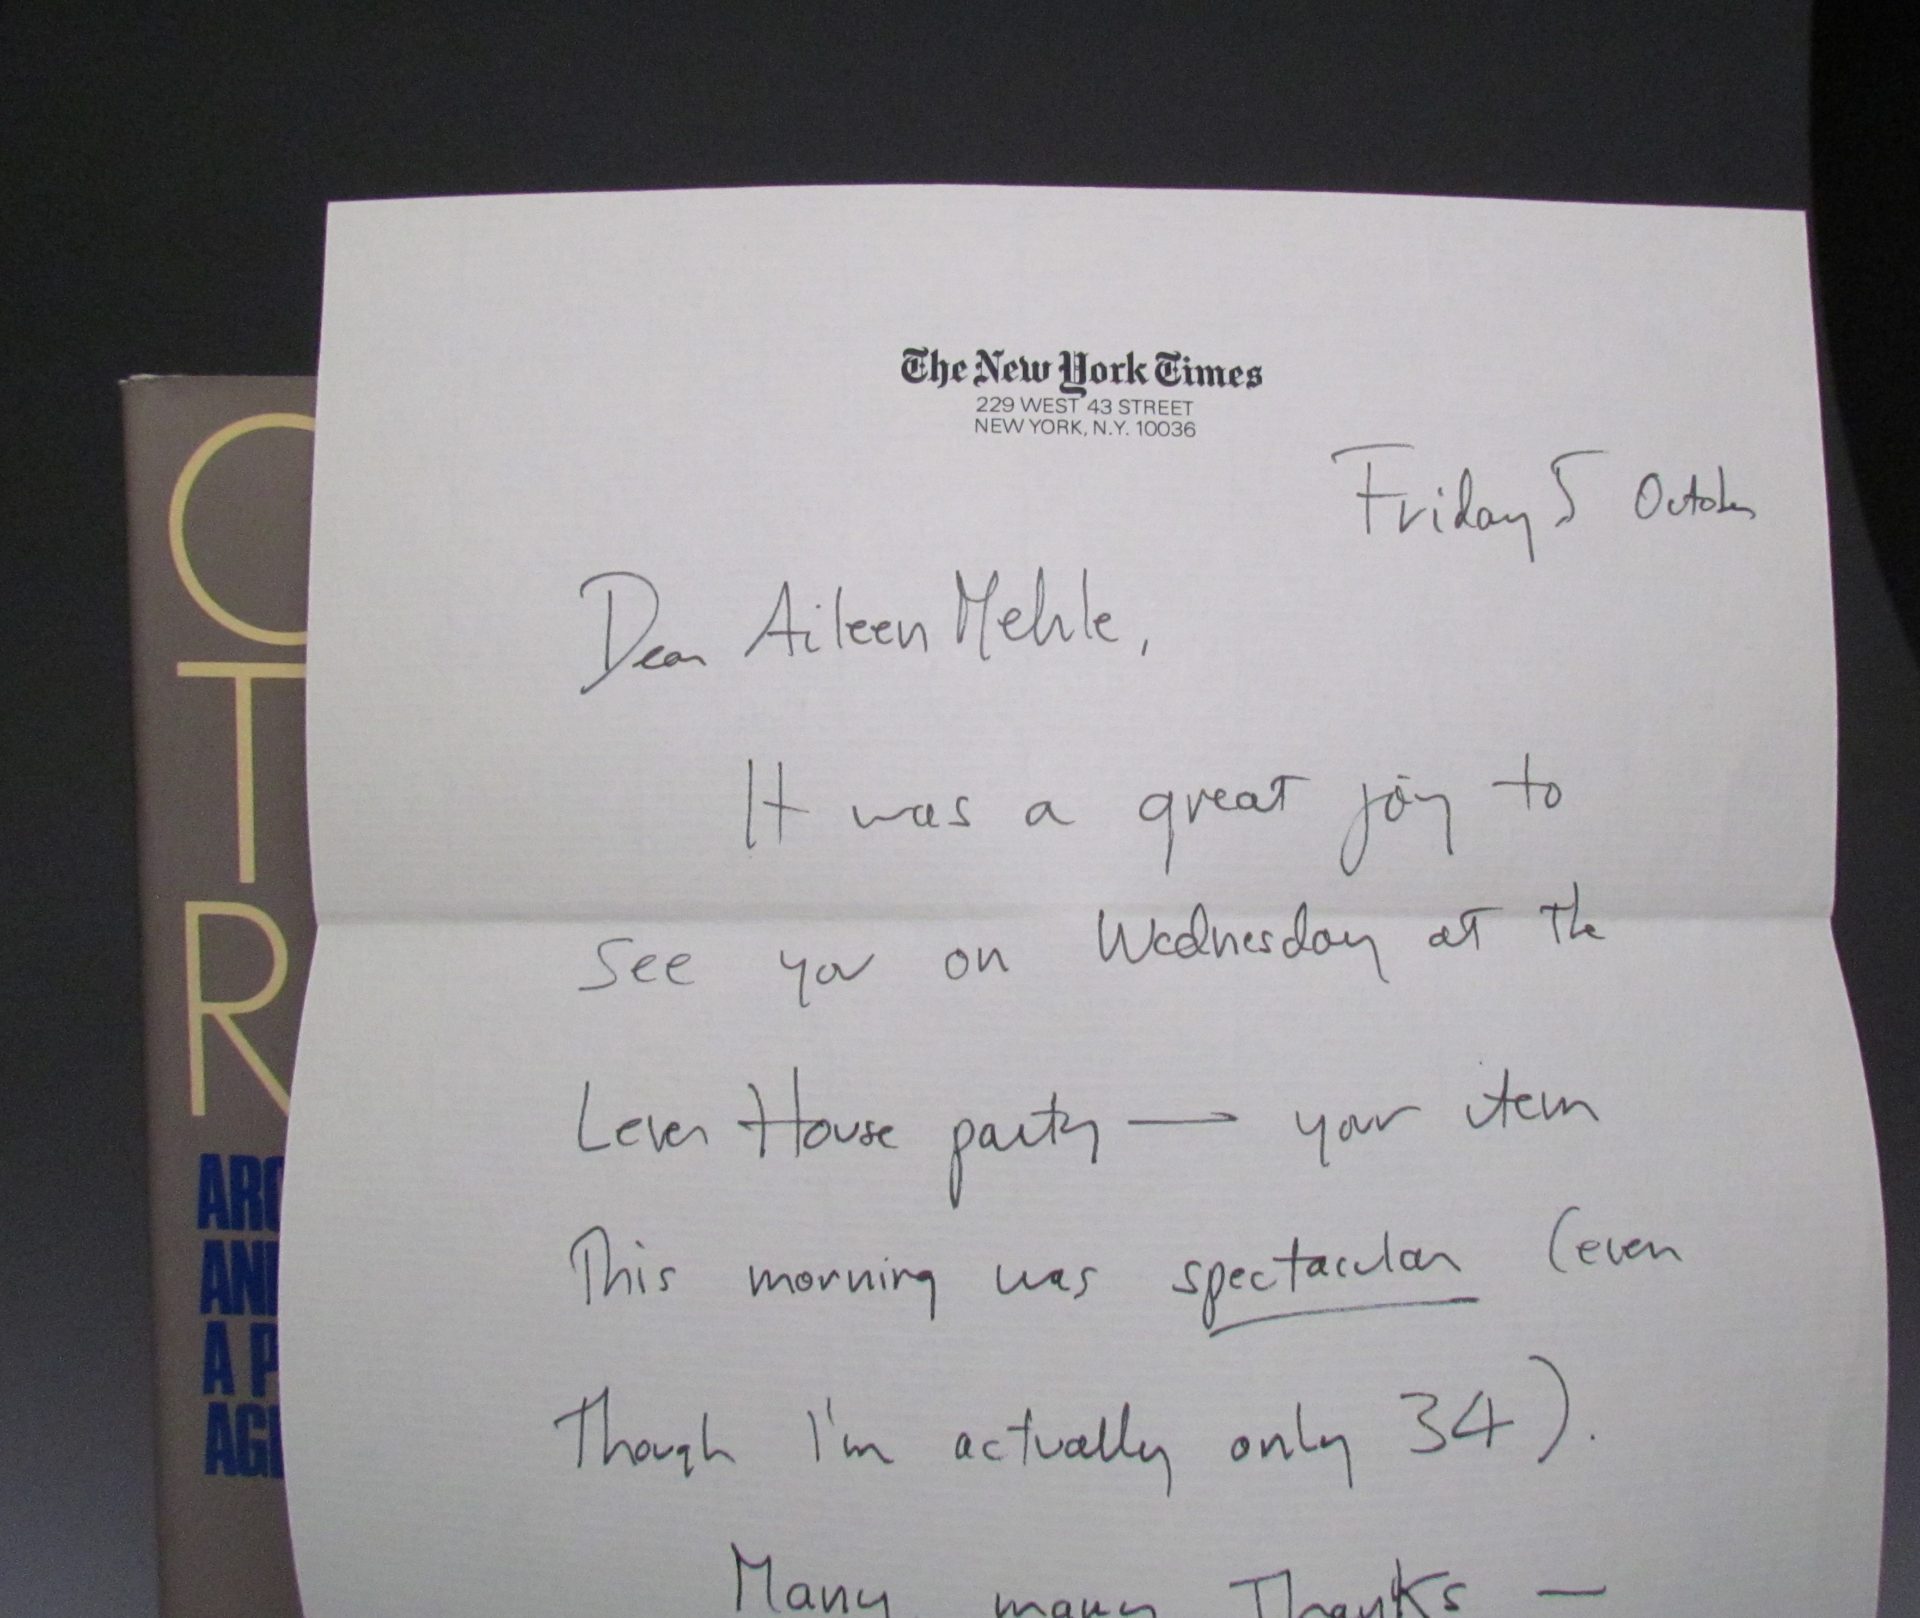 The New York Times
229 WEST 43 STREET
NEW YORK, N.Y. 10036
Friday 5 October
Dear Aileen Mehle,
It was a great joy to
see you on Wednesday at the
Lever House party — your item
This morning was spectacular (even
Though I'm actually only 34).
Many many Thanks —
O
T
R
ARC
AND
A P
AGE